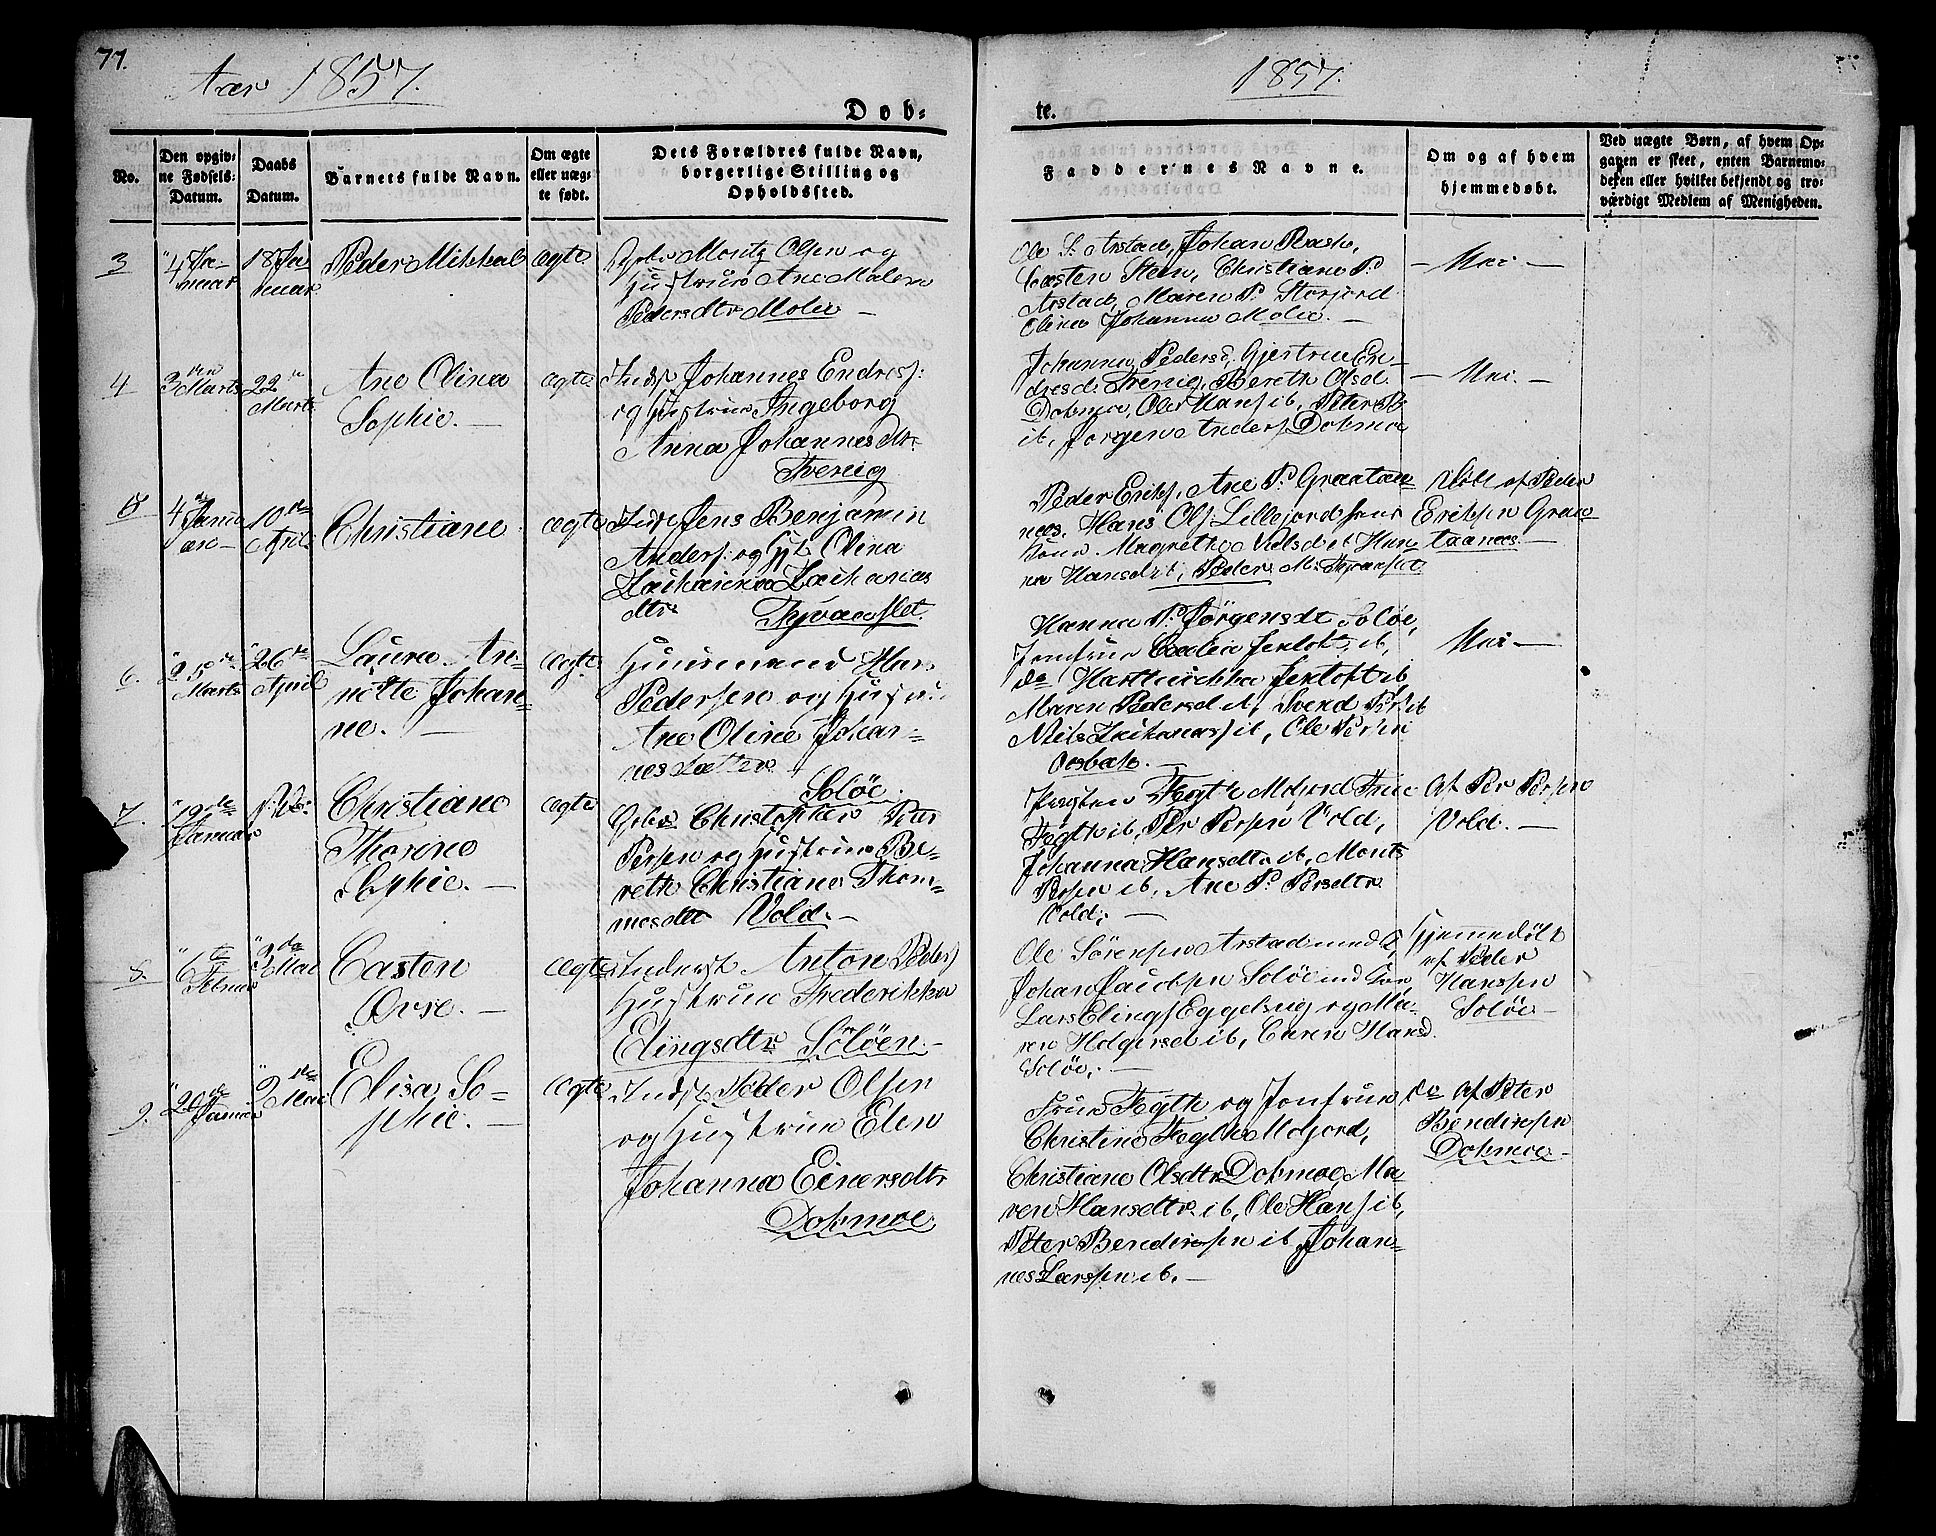 77.
Aar 1857.
1857.
Døb-
te.
No.
Den opgiv-
ne Fødsels-
Datum.
Daabs
Datum.
Barnets fulde Navn.
Om ægte
eller uæg-
te født.
Dets Forældres fulde Navn,
borgerlige Stilling og
Opholdssted.
Faddernes Navne.
Om og af hvem
hjemmedøbt.
Ved uægte Børn, af hvem Op-
gaven er skeet, enten Barnemo-
deren eller hvilket bekjendt og tro-
værdigt Medlem af Menigheden.
3
4 Ja-
nuar
18 Ja
nuar
Peder Mikkal
ægte
Montz Olsen og
Hustrue Ane Malene
Pedersdtr Molie
Ole S. Arstad, Johan Rask,
Casten Steen, Christiane P.
Arstad, Maren P. Storjord
Olina Johanna Molie.
Nei
4
3 Marts
22
Marts
Ane Olina
Sophie.
ægte
Inds Johannes Endres:
og Hustrue Ingeborg
Anna Johannesdtr.
Trenig
Johanna Pedersd, Gjertrue En-
dresd. Trenig, Bereth Olsd.
Dokmoe, Ole Hans ib, Peter
ib, Jørgen Anders Dokmoe
Nei.
5
4 Janu
10de
April
Christiane
ægte
Inds Jens Benjamin
Anders: og Hst Olina
Zacharina Zacharias
dtr
Peder Eriks, Ane P. Graatan-
næs, Hans Ols: Lillejord
Magrethe Nielsd ib Han-
na Hansdt ib, Peder M.
Døbt af Peder
Eriksen Graa
taanæs.
6.
25de
Marts
26de
April
Laura An-
nette Johan-
ne.
ægte
Huusmand Hans
Pedersen og Hustrue
Ane Oline Johan-
nesdatter
Soløe.
Hanna P. Jørgensdt Soløe,
Jomfrue ib,
do ib
Maren Pedersd ib, Svend ib
Niels Zacharias ib, Ole
Nei
7.
19de
Januar
Christiane
Thorine
Sophie.
ægte
Christopher Peter
Persen og Hustrue Be-
reth Christiane Thom-
mesdtr Vold.
Fogth Mojord Frue
Fogth ib, Per Persen Vold,
Johanna Hansdtr ib, Monts
Persen ib, Ane P. Persdtr
Vold.
Af Per Persen
Vold.
8.
6
Februar
3 Mai
Casten
Ovse.
ægte
Inderst Anton Peders
Hustrue Frederikka
Elingsdtr Soløen.
Ole Sörensen Arstad
Johan Jacobsen Soløe
Lars Elings Eggelsvig og Ma-
ren Holgersd ib, Caren Hansd.
Soløe.
Hjemmedöbt
af Peder
Hanssen
Soløe
9.
20de
Januar
2 Mai
Elisa So-
phie.
ægte
Inds Peder Olsen
og Hustrue Elen
Johanna Einersdtr
Dokmoe
Frue Fogth og Jomfrue
Christine Fogth Mojord,
Christiane Olsdtr Dokmoe, Ma-
ren Hansdtr. ib, Ole Hans ib,
Peter Bendixsen ib Johan-
nes Larssen ib.
do af Peter
Bendixsen
Dokmoe